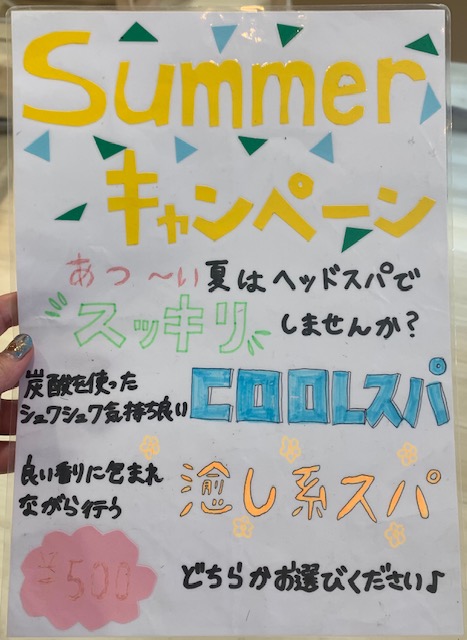 Summer
キャンペーン
あつ〜い夏はヘッドスパで
スッキリしませんか？
炭酸を使った
シュワシュワ気持ち良い COOLスパ
良い香りに包まれ
ながら行う 癒し系スパ
¥500
どちらかお選びください♪